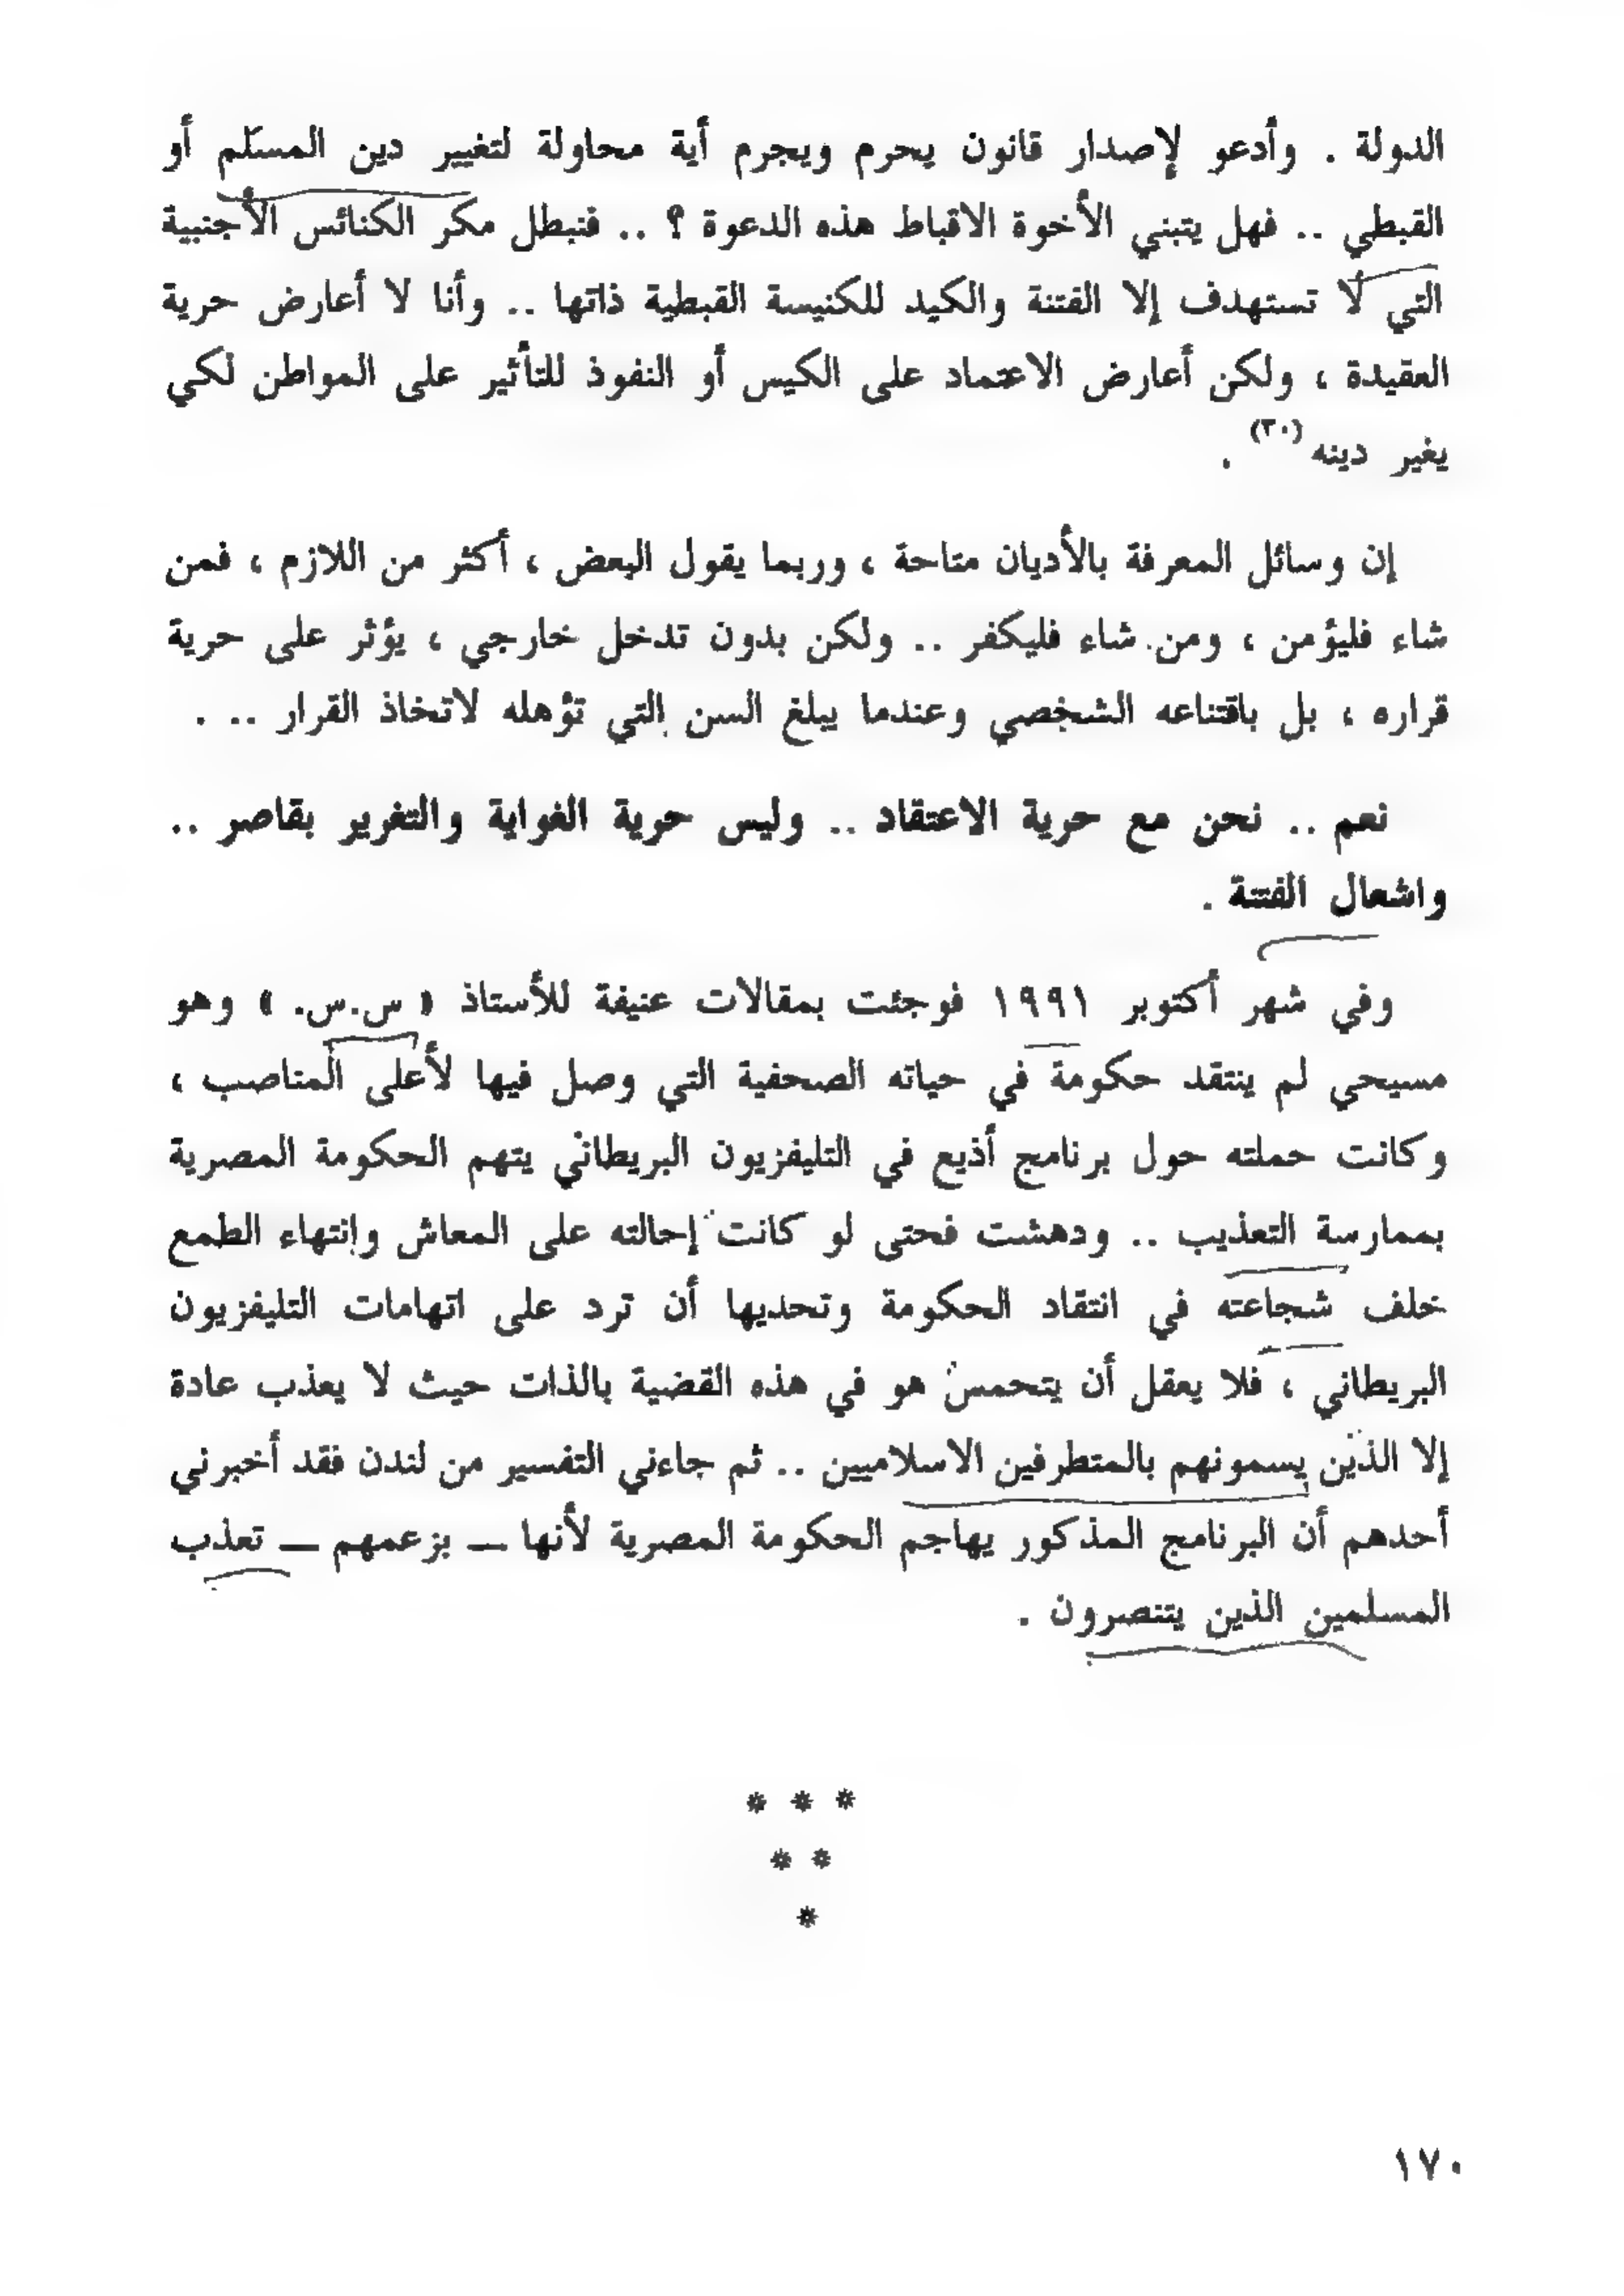 الدولة . وأدعو لإصدار قانون يحرم ويجرم أية محاولة لتغيير دين المسلم أو
القبطي .. فهل يتبني الأخوة الاقباط هذه الدعوة ؟ .. فنبطل مكر الكنائس الأجنبية
التي لا تستهدف إلا الفتنة والكيد للكنيسة القبطية ذاتها .. وأنا لا أعارض حرية
العقيدة ، ولكن أعارض الاعتماد على الكيس أو النفوذ للتأثير على المواطن لكي
يغير دينه (٣٠) .
إن وسائل المعرفة بالأديان متاحة ، وربما يقول البعض ، أكثر من اللازم ، فمن
شاء فليؤمن ، ومن شاء فليكفر .. ولكن بدون تدخل خارجي ، يؤثر على حرية
قراره ، بل باقتناعه الشخصي وعندما يبلغ السن التي تؤهله لاتخاذ القرار .. .
نعم .. نحن مع حرية الاعتقاد .. وليس حرية الغواية والتغرير بقاصر ..
واشعال الفتنة .
وفي شهر أكتوبر ١٩٩١ فوجئت بمقالات عنيفة للأستاذ « س.س. » وهو
مسيحي لم ينتقد حكومة في حياته الصحفية التي وصل فيها لأعلى المناصب ،
وكانت حملته حول برنامج أذيع في التليفزيون البريطاني يتهم الحكومة المصرية
بممارسة التعذيب .. ودهشت فحتى لو كانت إحالته على المعاش وإنتهاء الطمع
خلف شجاعته في انتقاد الحكومة وتحديها أن ترد على اتهامات التليفزيون
البريطاني ، فلا يعقل أن يتحمس هو في هذه القضية بالذات حيث لا يعذب عادة
إلا الذين يسمونهم بالمتطرفين الاسلاميين .. ثم جاءني التفسير من لندن فقد أخبرني
أحدهم أن البرنامج المذكور يهاجم الحكومة المصرية لأنها — بزعمهم — تعذب
المسلمين الذين يتنصرون .
* * *
* *
*
١٧٠